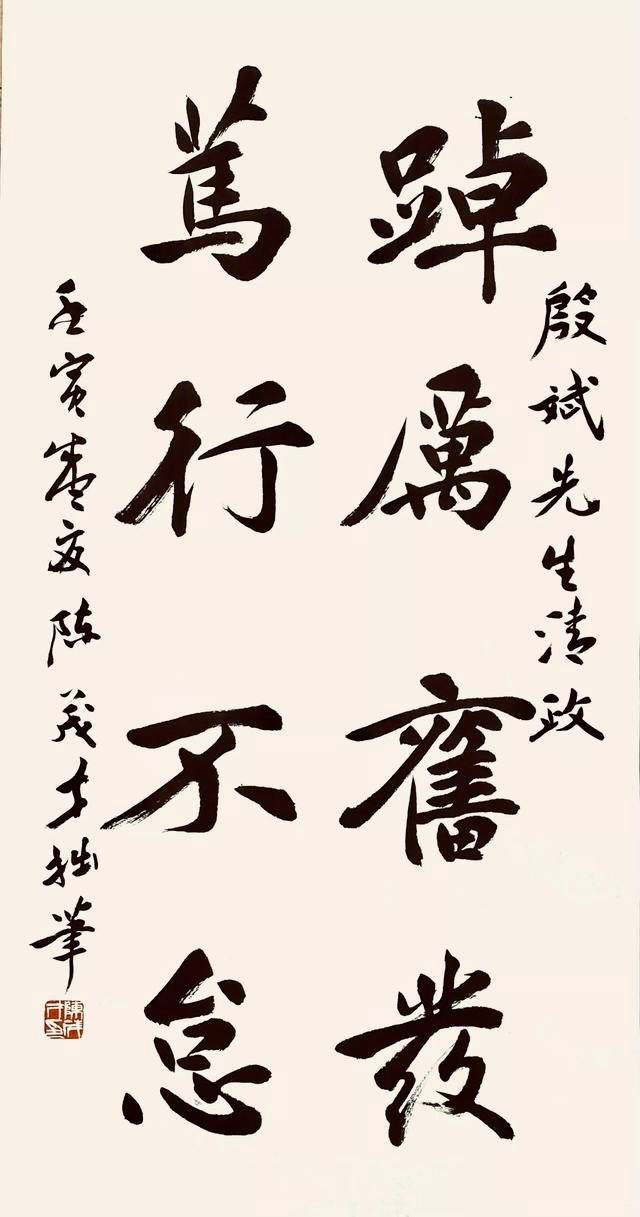 殷斌先生清政
踔厲奮發
篤行不怠
壬寅盛夏陈茂才拙筆
陳茂才印